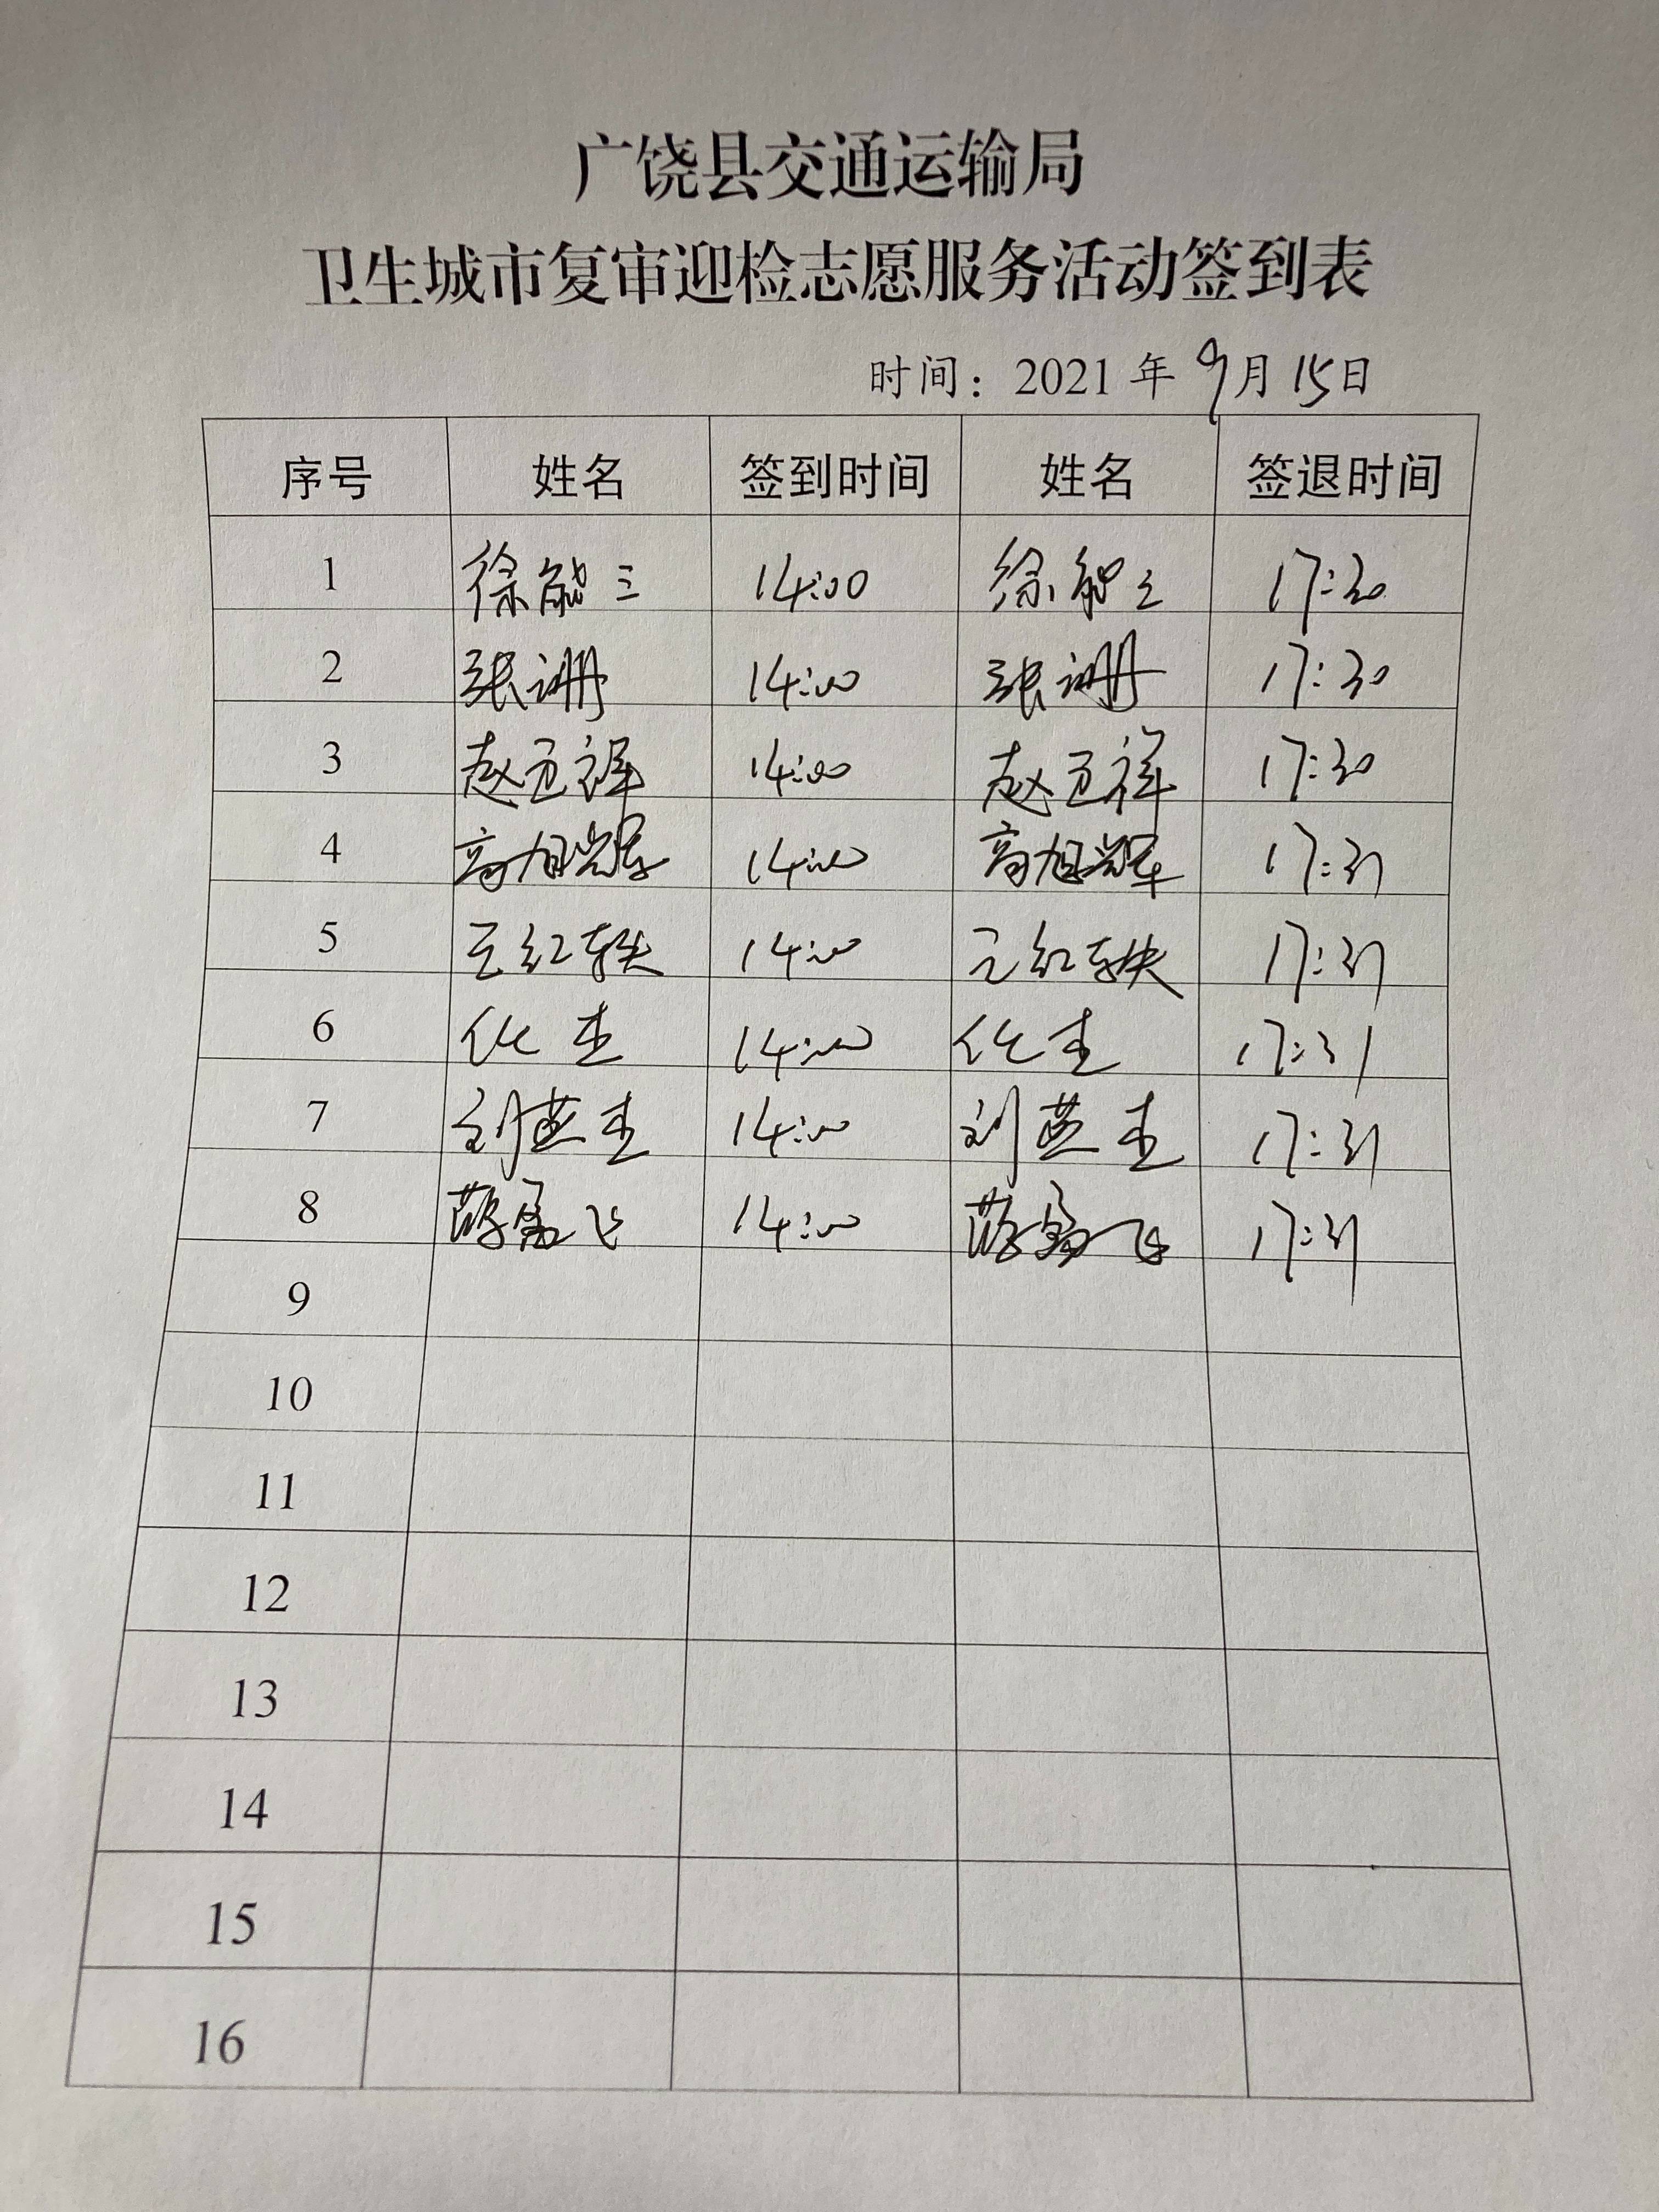 广饶县交通运输局
卫生城市复审迎检志愿服务活动签到表
时间：2021年9月15日
序号 姓名 签到时间 姓名 签退时间
1 徐能三 14:00 徐能三 17:30
2 张 14:00 张 17:30
3 赵卫祥 14:00 赵卫祥 17:30
4 高旭辉 14:00 高旭辉 17:31
5 王红轶 14:00 王红轶 17:31
6 14:00 17:31
7 刘英杰 14:00 刘英杰 17:31
8 飞 14:00 飞 17:31
9
10
11
12
13
14
15
16